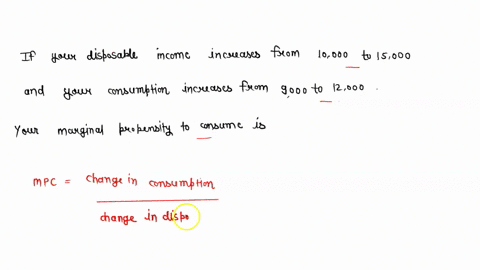 If your disposable income increases from 10,000 to 15,000
and your consumption increases from 9,000 to 12,000.
Your marginal propensity to consume is
MPC = change in consumption
change in dispo